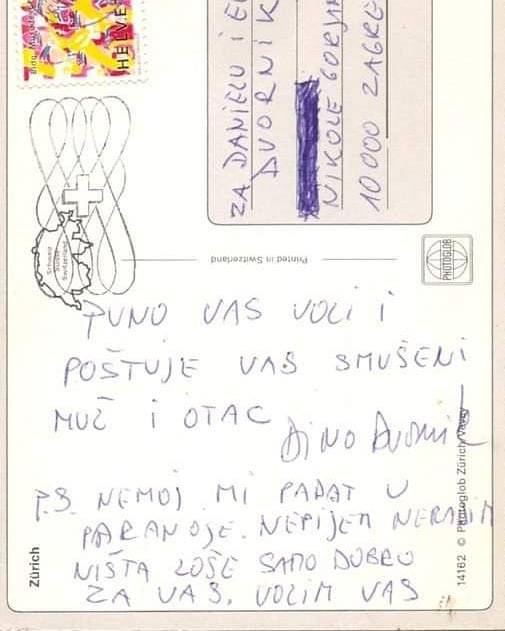 HELVE
ZA DANIELU I E
DVORNIK
NIKOLE GORJAN
10000 ZAGRE
Schweiz
Suisse
Switzerland
Printed in Switzerland
PHOTOGLOB
PUNO VAS VOLI I
POŠTUJE VAS SMUŠENI
MUŽ I OTAC
Dino Dvornik
P.S. NEMOJ MI PADAT U
PARANOJE. NEPIJEM NERADIM
NIŠTA LOŠE SAMO DOBRO
ZA VAS. VOLIM VAS
Zürich
14162 © Photoglob Zürich/Vevey